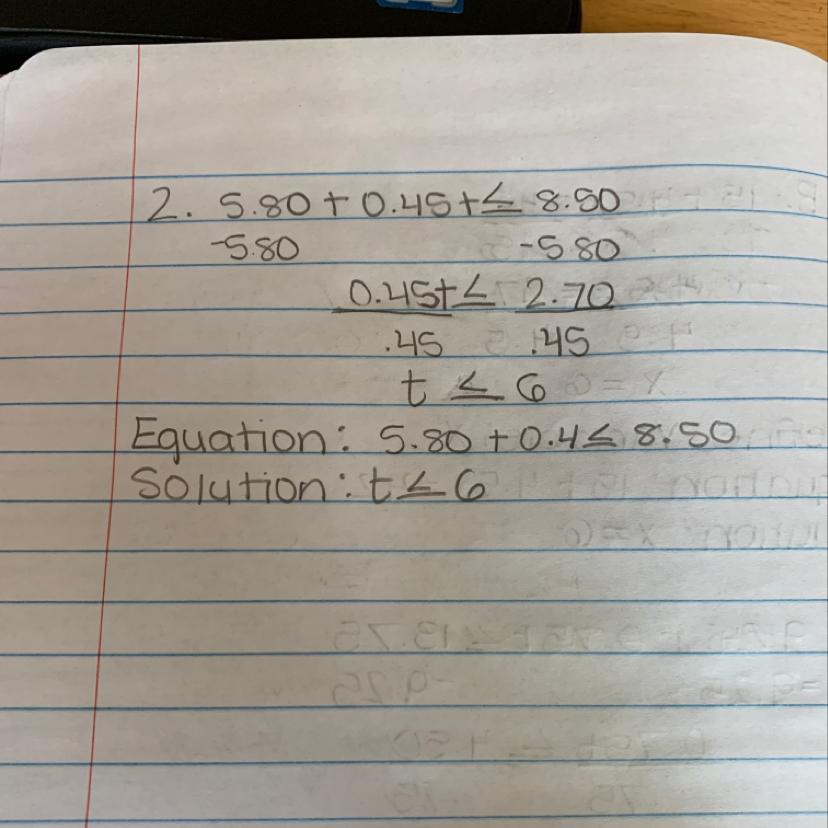 2. 5.80 + 0.45t ≤ 8.50
-5.80 -5.80
0.45t ≤ 2.70
.45 .45
t ≤ 6
Equation: 5.80 + 0.4 ≤ 8.50
Solution: t ≤ 6